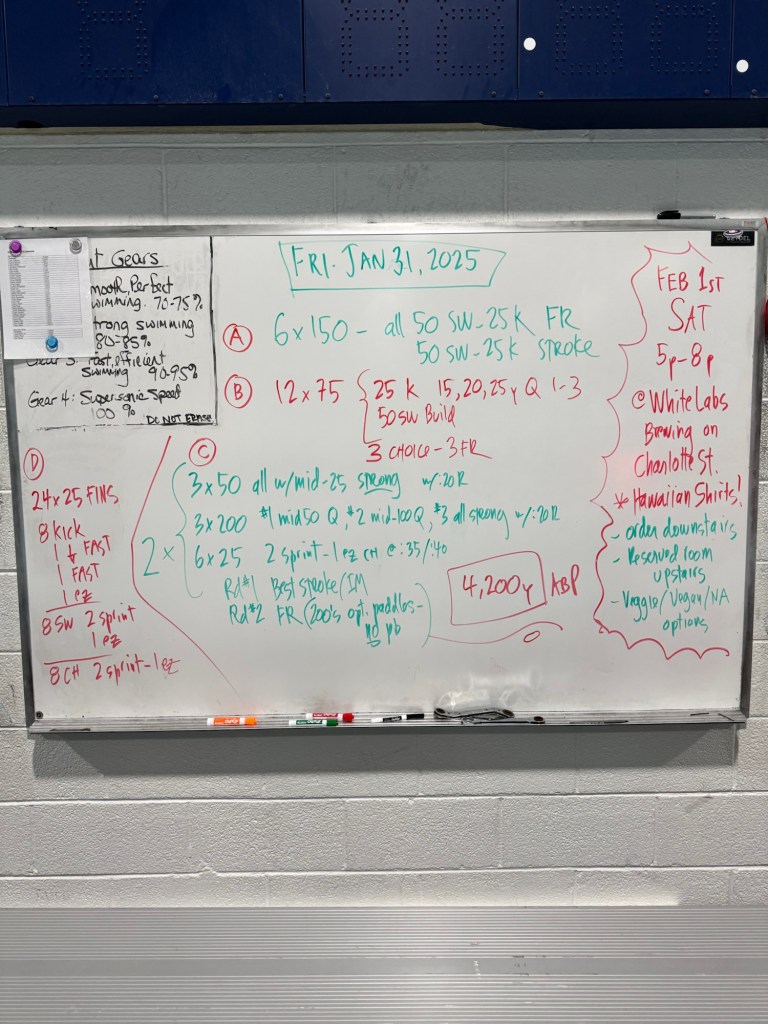 FRI. JAN 31, 2025
t Gears
mooth, Perfect
wimming. 70-75%
trong swimming
80-85%
Gear 3: Fast, efficient
swimming 90-95%
Gear 4: Supersonic Speed
100 %
DO NOT ERASE
A 6x150 - all 50 SW-25K FR
50 SW-25K STROKE
B 12 x 75 25 K 15, 20, 25y Q 1-3
50 SW Build
3 CHOICE - 3 FR
C
2 x
3 x 50 all w/mid-25 strong w/:20R
3 x 200 #1 mid 50 Q, #2 mid-100 Q, #3 all strong w/:20R
6 x 25 2 sprint-1 ez CH @ :35/:40
Rd#1 Best stroke/IM
Rd#2 FR (200's opt. paddles-
no pb
4,200y ABP
D
24 x 25 FINS
8 KICK
1 ↓ FAST
1 FAST
1 ez
8 SW 2 sprint
1 ez
8 CH 2 sprint-1 ez
FEB 1ST
SAT
5p-8p
@ White Labs
Brewing on
Charlotte St.
* Hawaiian Shirts!
- order downstairs
- Reserved room
upstairs
- Veggie/Vegan/NA
options